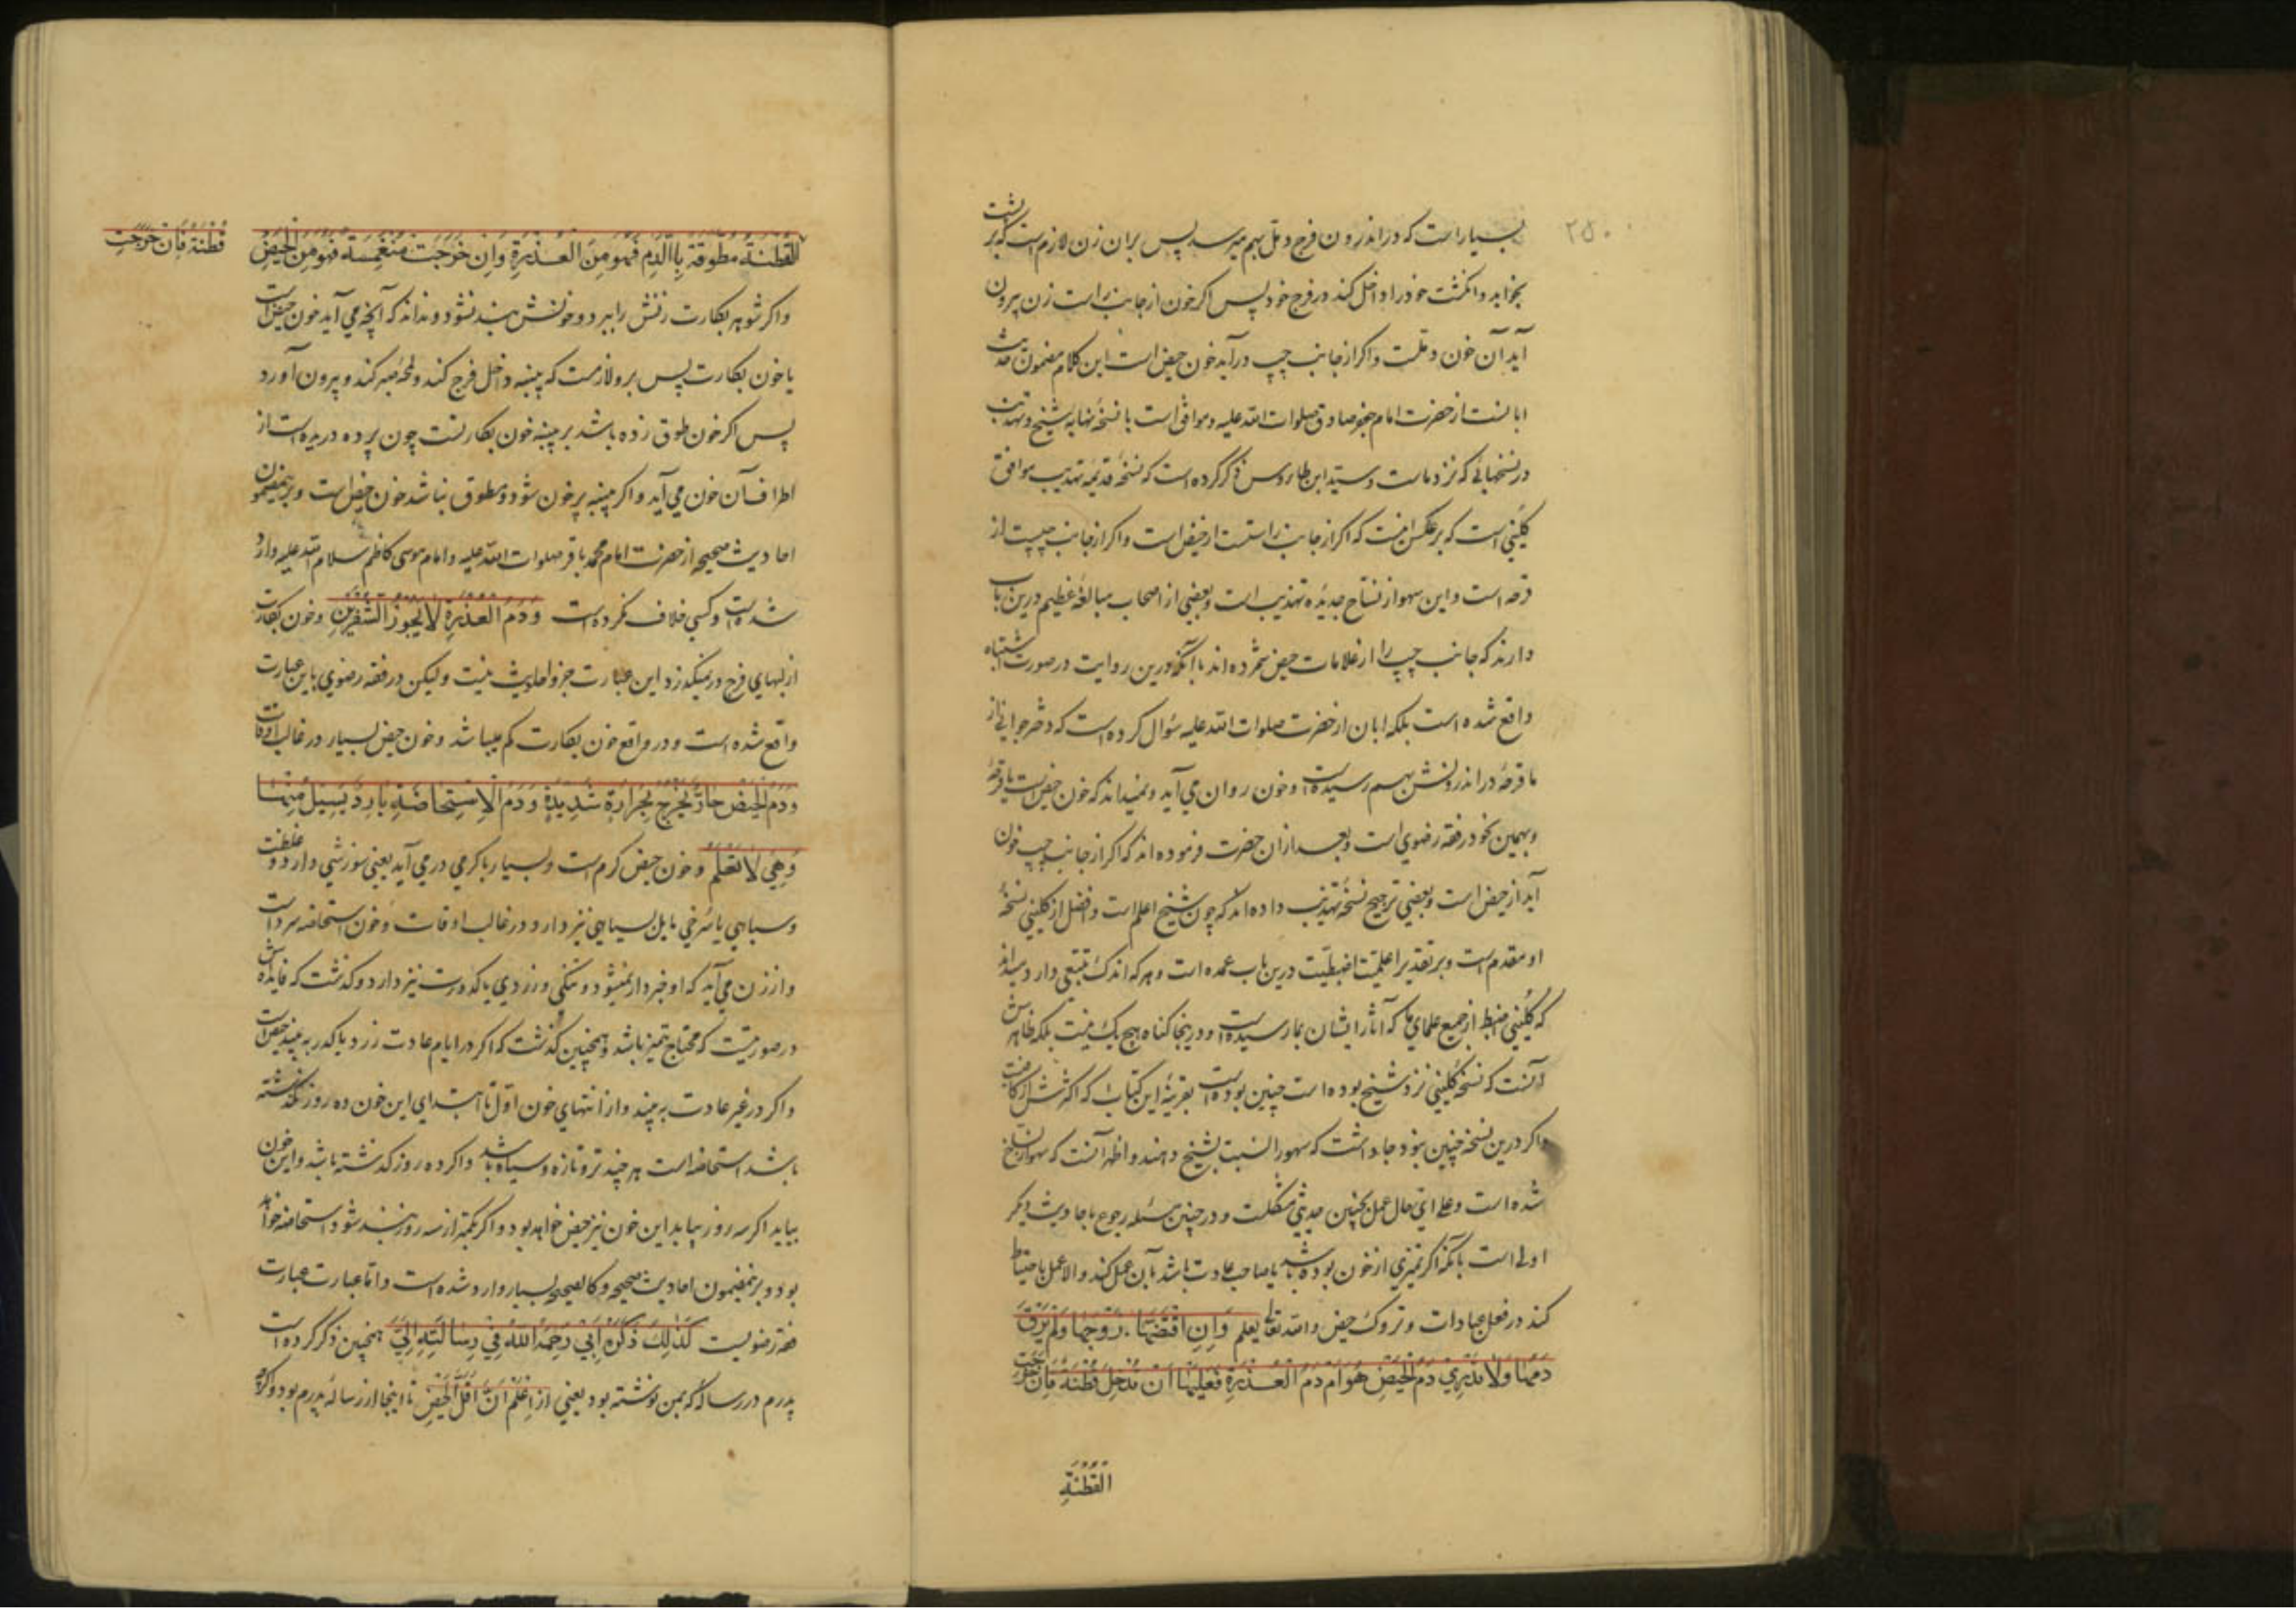 ۲۵۰
بسیار است که در اندرون فرج دمل بهم میرسد پس بران زن لازمست که بر پشت
بخوابد و انکشت خود را داخل کند در فرج خود پس اکر خون از جانب راست زن بیرون
آید آن خون دملست و اکر از جانب چپ درآید خون حیض است این کلام مضمون حدیث
ابانست از حضرت امام جعفر صادق صلوات الله علیه و موافق است با نسخهٔ نهایهٔ شیخ و تهذیب
در نسخهائی که نزد ماست و سید ابن طاوس ذکر کرده است که نسخهٔ قدیمهٔ تهذیب موافق
کلینی است که بر عکس اینست که اکر از جانب راستست از حیض است و اکر از جانب چپست از
قرحه است و این سهو از نساخ جدیدهٔ تهذیب است و بعضی از اصحاب مبالغهٔ عظیم درین باب
دارند که جانب چپ را از علامات حیض شمرده اند با آنکه درین روایت در صورت اشتباه
واقع شده است بلکه ابان از حضرت صلوات الله علیه سؤال کرده است که دختر جوانی از
ما قرحهٔ در اندرونش بهم رسیده است و خون روان می آید و نمیداند که خون حیض است یا قرحه
و بهمین نحو در فقه رضوی است و بعد از ان حضرت فرموده اند که اکر از جانب چپ خون
آید از حیض است و بعضی ترجیح نسخهٔ تهذیب داده اند که چون شیخ اعلم است و افضل از کلینی نسخهٔ
او مقدم است و بر تقدیر اعلمیت اضبطیت درین باب عمده است و هر که اندک تتبعی دارد میداند
که کلینی اضبط از جمیع علمای ما که آثار ایشان بما رسیده است و درینجا کناه هیچ یک نیست بلکه ظاهرش
آنست که نسخهٔ کلینی نزد شیخ بوده است چنین بوده است بقرینهٔ این کتاب که اکثرش از کافیست
و اکر درین نسخه چنین نبود جا داشت که سهو را نسبت بشیخ دهند و اظهر آنست که سهو از نساخ
شده است و علی ای حال عمل بچنین حدیثی مشکلست و در چنین مسئله رجوع باحادیث دیکر
اولی است بآنکه اکر تمیزی از خون بوده باشد یا صاحب عادت باشد بآن عمل کند و الا عمل باحتیاط
کند در فعل عبادات و تروک حیض والله تعالی یعلم وَاِنِ افْتَضَّهَا زَوْجُهَا وَلَمْ يَرْقَ
دَمُهَا وَلَا تَدْرِي دَمُ الْحَيْضِ هُوَ اَمْ دَمُ الْعُذْرَةِ فَعَلَيْهَا اَنْ تُدْخِلَ قُطْنَةً فَاِنْ خَرَجَتْ
الْقُطْنَةُ
قُطْنَةً فَاِنْ خَرَجَتِ
الْقُطْنَةُ مُطَوَّقَةً بِالدَّمِ فَهُوَ مِنَ الْعُذْرَةِ وَاِنْ خَرَجَتْ مُنْغَمِسَةً فَهُوَ مِنَ الْحَيْضِ
و اکر شوهر بکارت زنش را ببرد و خونش بند نشود و نداند که آنچه می آید خون حیض است
یا خون بکارت پس برو لازمست که پنبه داخل فرج کند و لمحهٔ صبر کند و بیرون آورد
پس اکر خون طوق زده باشد بر پنبه خون بکارتست چون پرده دریده است از
اطراف آن خون می آید و اکر پنبه پر خون شود و مطوق نباشد خون حیض است و برینمضمون
احادیث صحیحه از حضرت امام محمد باقر صلوات الله علیه و امام موسی کاظم سلام الله علیه وارد
شده است و کسی خلاف نکرده است وَدَمُ الْعُذْرَةِ لَا يَجُوزُ الشَّفْرَيْنِ و خون بکارت
از لبهای فرج در نمیکذرد این عبارت جزو احادیث نیست و لیکن در فقه رضوی باین عبارت
واقع شده است و در واقع خون بکارت کم میباشد و خون حیض بسیار در غالب اوقات
وَدَمُ الْحَيْضِ حَارٌّ يَخْرُجُ بِحَرَارَةٍ شَدِيدَةٍ وَدَمُ الْاِسْتِحَاضَةِ بَارِدٌ يَسِيلُ مِنْهَا
وَهِيَ لَا تَعْلَمُ و خون حیض کرم است و بسیار با کرمی در می آید یعنی سوزشی دارد و غلظت
و سیاهی یا سرخی مایل بسیاهی نیز دارد در غالب اوقات و خون استحاضه سرد است
و از زن می آید که او خبردار نمیشود و تنکی و زردی یا کدورت نیز دارد و کذشت که فایده اش
در صورتیست که محتاج بتمیز باشد و همچنین کذشت که اکر در ایام عادت زرد یا کدر به بیند حیض است
و اکر در غیر عادت به بیند و از انتهای خون اول تا ابتدای این خون ده روز نکذشته
باشد استحاضه است هر چند تر و تازه و سیاه باشد و اکر ده روز کذشته باشد و این خون
بیاید اکر سه روز بیاید این خون نیز حیض خواهد بود و اکر کمتر از سه روز بند شود استحاضه خواهد
بود و برینمضمون احادیث صحیحه و کالصحیحه بسیار وارد شده است و اما عبارت عبارت
فقه رضویست كَذٰلِكَ ذَكَرَهُ اَبِي رَحِمَهُ اللّٰهُ فِي رِسَالَتِهِ اِلَيَّ همچنین ذکر کرده است
پدرم در رسالهٔ که بمن نوشته بود یعنی از اِعْلَمْ اَنَّ اَقَلَّ الْحَيْضِ تا اینجا از رسالهٔ پدرم بود